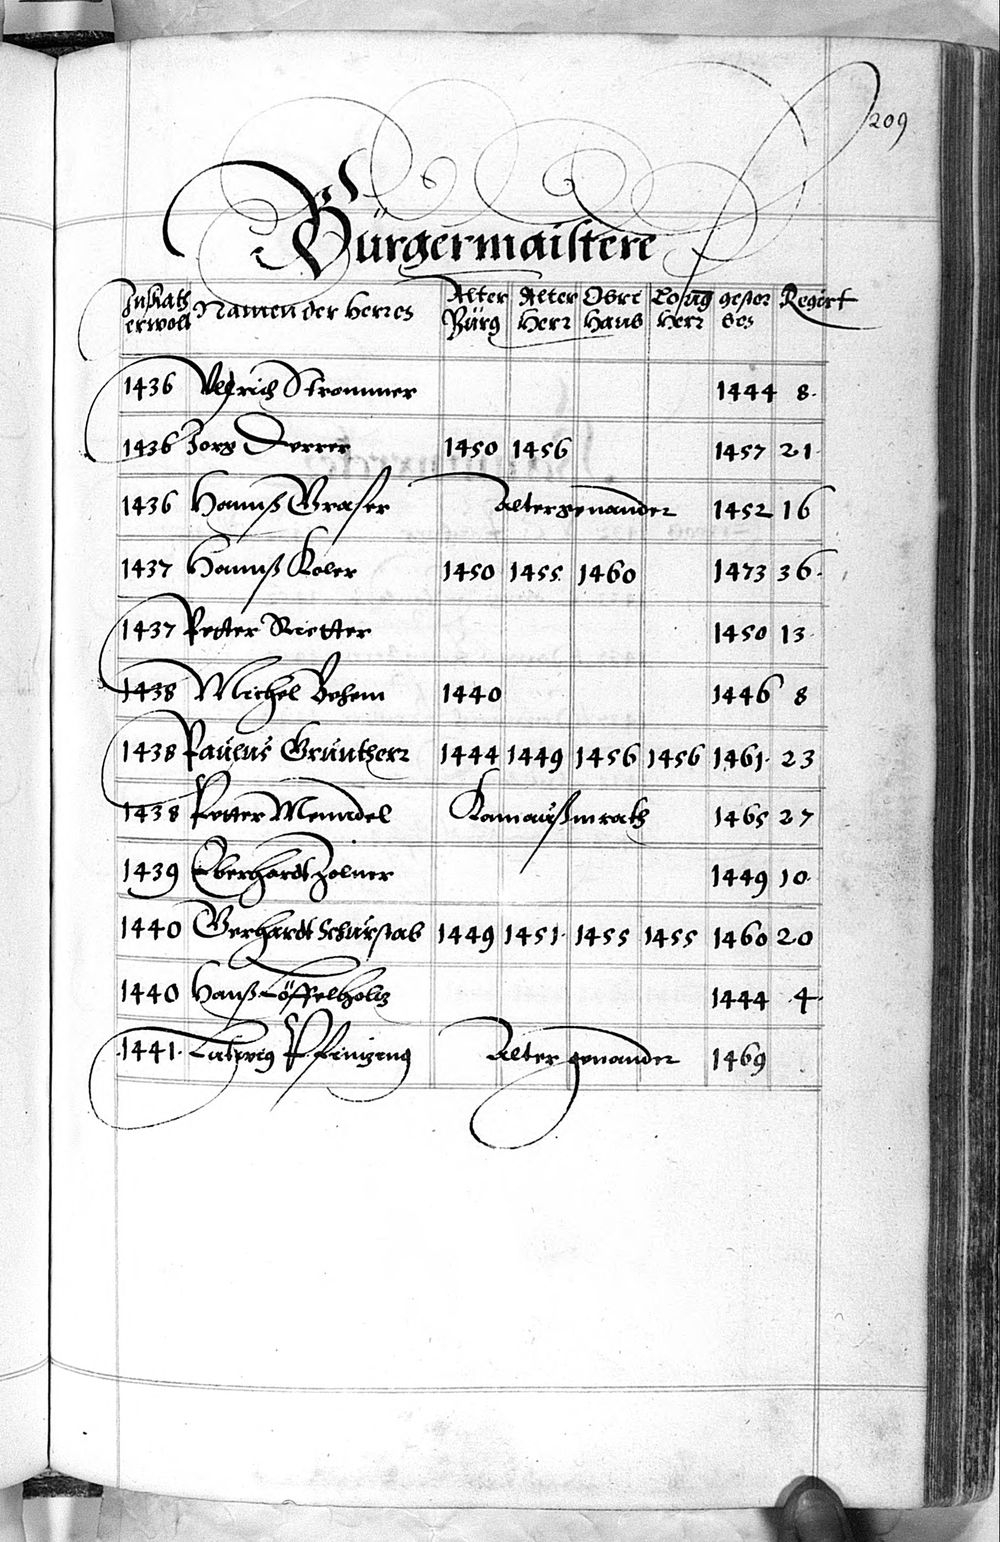 209
Bürgermaistere
In Rath erwölt Namen der Herren Alter Bürg Alter Herr Obre Haub Losŭg Herr gestorben Regirt
1436 Ulrich Stromer 1444 8
1436 Jorg Derrer 1450 1456 1457 21
1436 Hannß Graser Altergenander 1452 16
1437 Hannß Koler 1450 1455 1460 1473 36
1437 Petter Rietter 1450 13
1438 Michel Behem 1440 1446 8
1438 Paulus Grŭntherr 1444 1449 1456 1456 1461 23
1438 Petter Menndel Kam aŭß m rath 1465 27
1439 Eberhardt Zolner 1449 10
1440 Gerhardt Schŭrstab 1449 1451 1455 1455 1460 20
1440 Hanß Löffelholtz 1444 4
1441 Ludwig Pfinzing Alter genander 1469